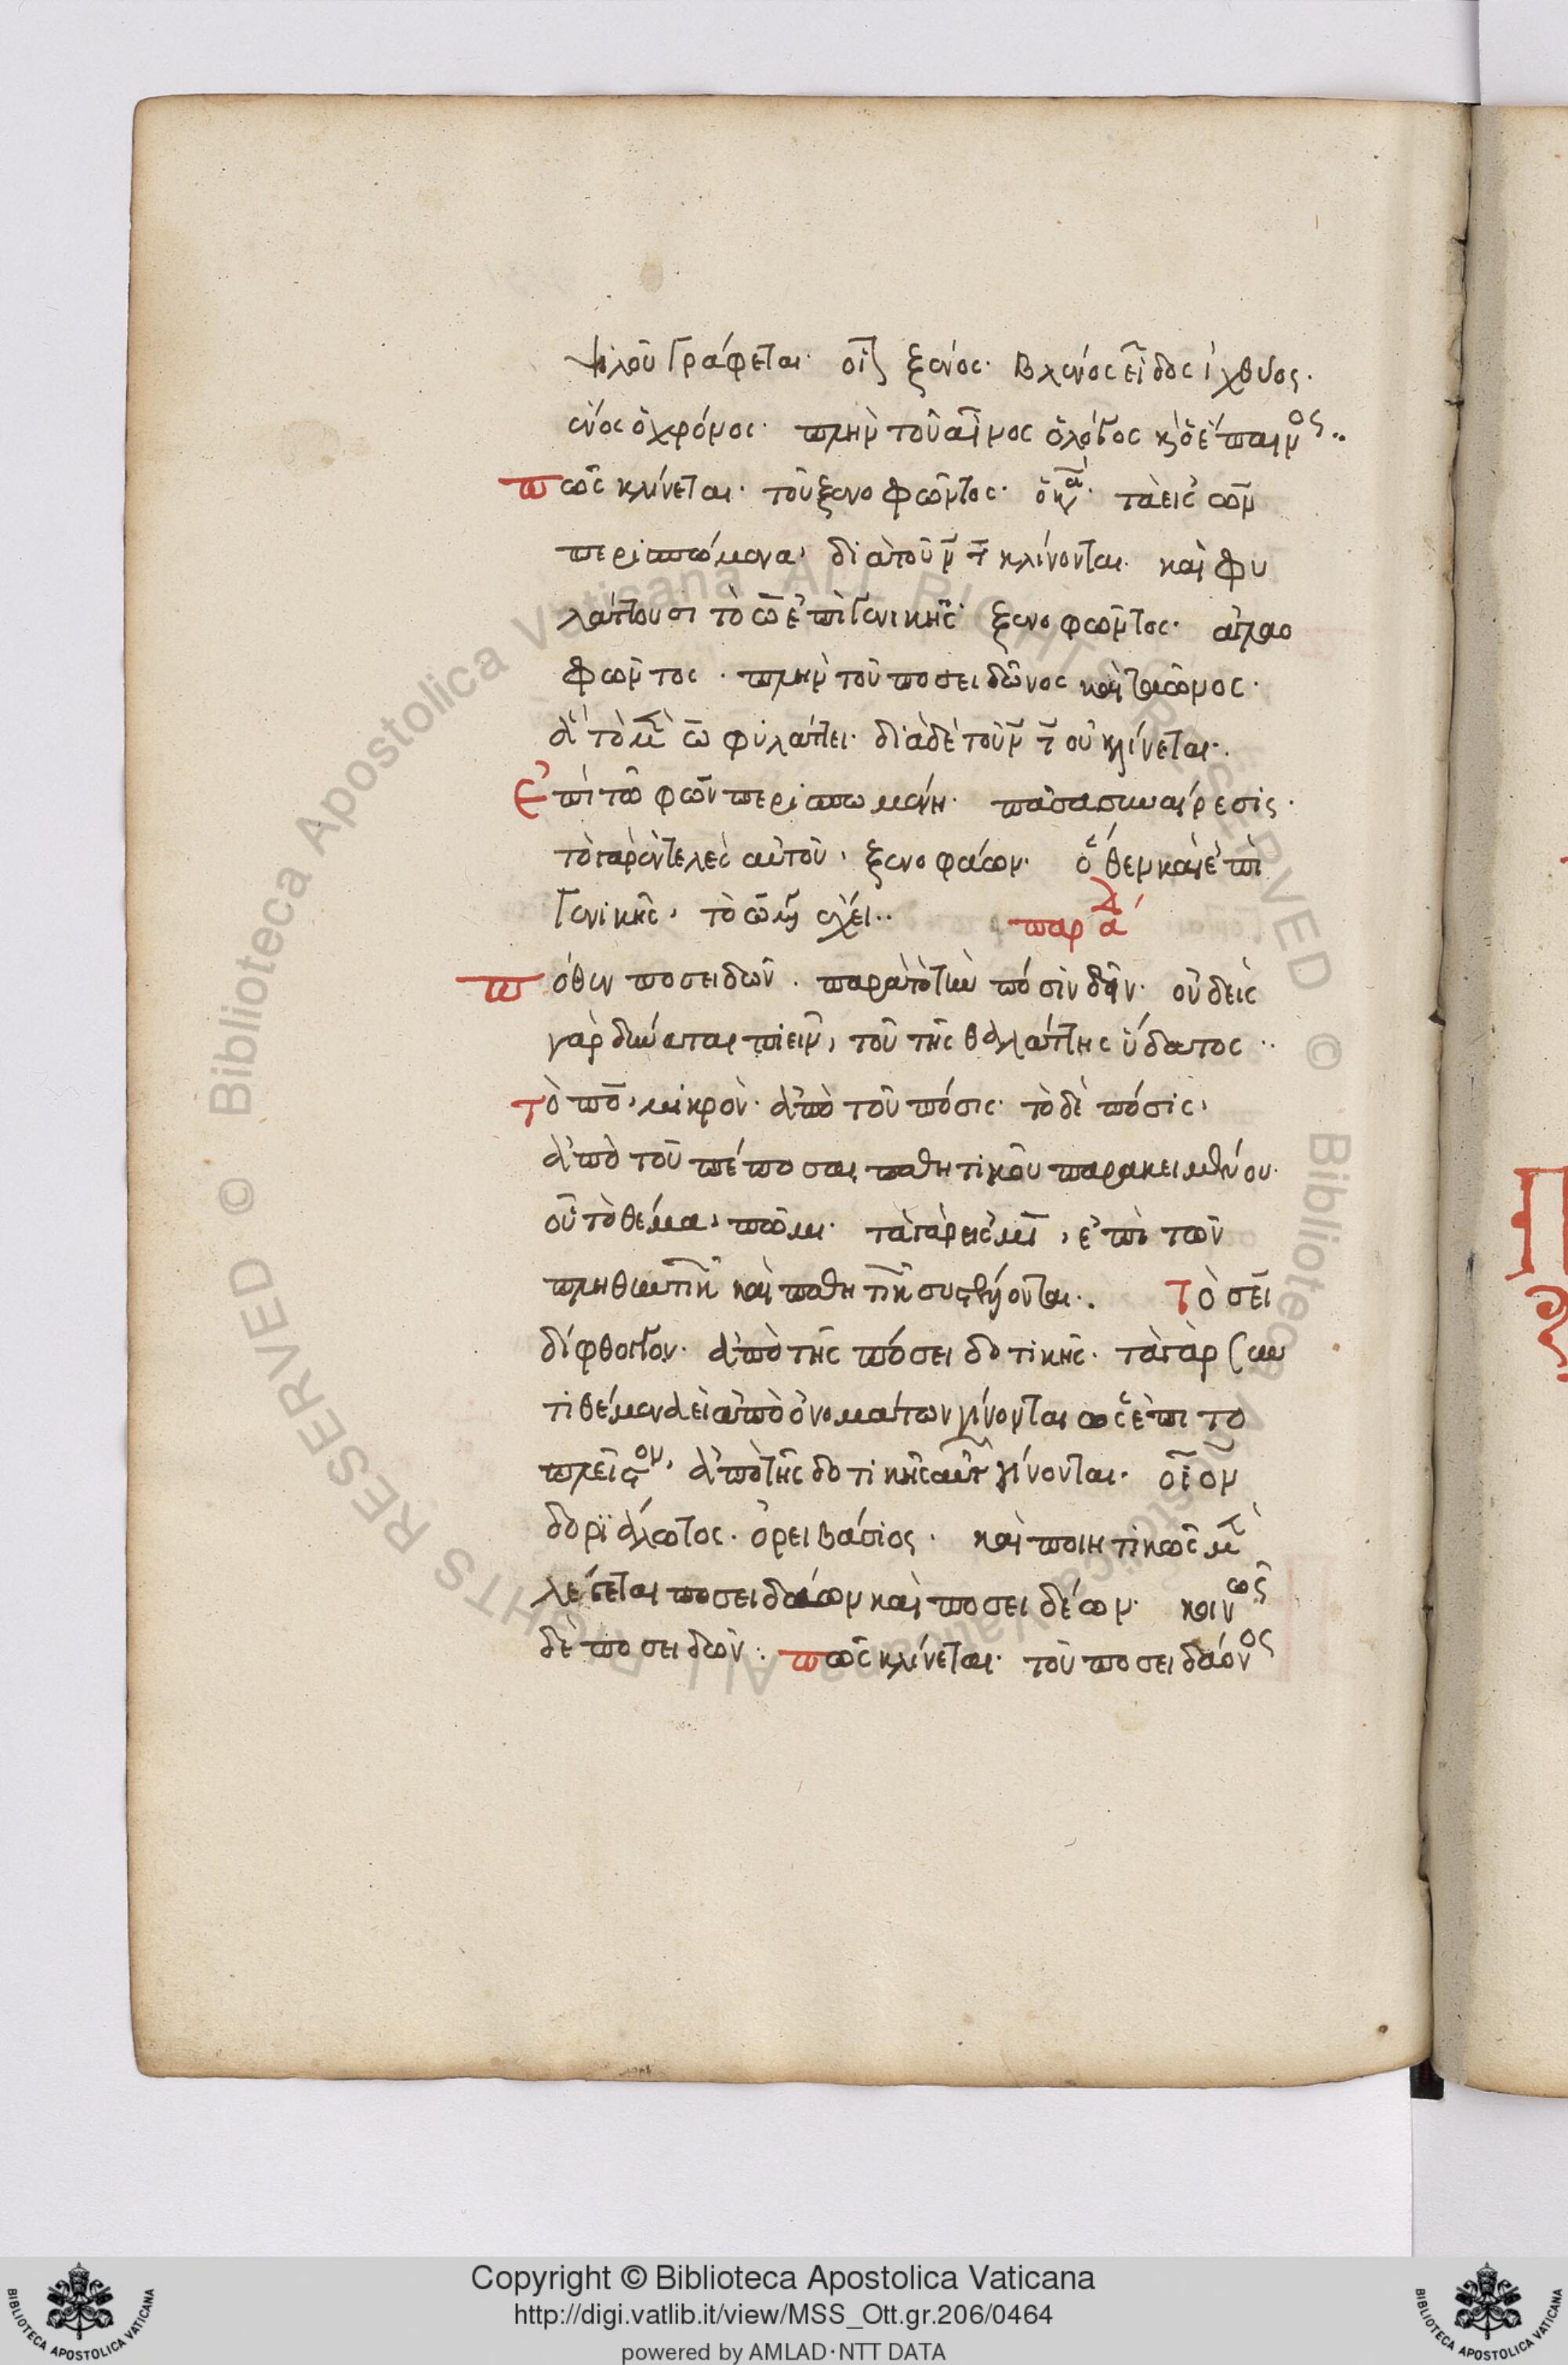 ψιλοῦ γράφεται· οἷον ξενός· βλενός εἶδος ἰχθύος·
ἐνος ὁ χρόνος· πλὴν τοῦ αἶνος ὁ λόγος κ ὁ ἔπαινος··
πῶς κλίνεται· τοῦ ξενοφῶντος· ὁ κανών· τὰ εἰς ῶν
περισπώμενα, διὰ τοῦ ν̄ τ̄ κλίνονται· καὶ φυ
λάττουσι τὸ ω̄ ἐπὶ γενικῆς· ξενοφῶντος· ἀγλαο
φῶντος· πλὴν τοῦ ποσειδῶνος καὶ ταῶνος·
ἃ τὸ μὲν ω̄ φυλάττει· διὰ δὲ τοῦ ν̄ τ̄ οὐ κλίνεται·
ἐπὶ τῶ φῶν περισπωμένη· πᾶσα συναίρεσις·
τὸ γὰρ ἐντελὲς αὐτοῦ, ξενοφάων· ὅθεν καὶ ἐπὶ
γενικῆς, τὸ ω̄ ἔχει··
πόθεν ποσειδῶν· παρὰ τὸ τὴν πόσιν δεῖν· οὐδεὶς
γὰρ δύναται πιεῖν, τοῦ τῆς θαλάττης ὕδατος··
τὸ πο̄, μικρὸν· ἀπὸ τοῦ πόσις· τὸ δὲ πόσις,
ἀπὸ τοῦ πέποσαι παθητικοῦ παρακειμένου·
οὗ τὸ θέμα, πῶμι· τὰ γὰρ εἰς μῑ, ἐπὶ τῶν
πληθυντικῶν καὶ παθητικῶν συστέλλονται·. Τὸ σεῑ
δίφθογγον· ἀπὸ τῆς πόσει δοτικῆς· τὰ γὰρ συν
τιθέμενα εἰ ἀπὸ ὀνομάτων γίνονται ὡς ἐπὶ το
πλεῖστον, ἀπὸ τῆς δοτικῆς αὐτῶν γίνονται· οἷον
δορϊάλωτος· ὀρειβάσιος· καὶ ποιητικῶς μὲν
λέγεται ποσειδάων καὶ ποσειδέων· κοινῶς
δὲ ποσειδῶν· πῶς κλίνεται· τοῦ ποσειδάονος
Copyright © Biblioteca Apostolica Vaticana
http://digi.vatlib.it/view/MSS_Ott.gr.206/0464
powered by AMLAD·NTT DATA
BIBLIOTECA APOSTOLICA VATICANA
BIBLIOTECA APOSTOLICA VATICANA
© Biblioteca Apostolica Vaticana ALL RIGHTS RESERVED © Biblioteca Apostolica Vaticana ALL RIGHTS RESERVED